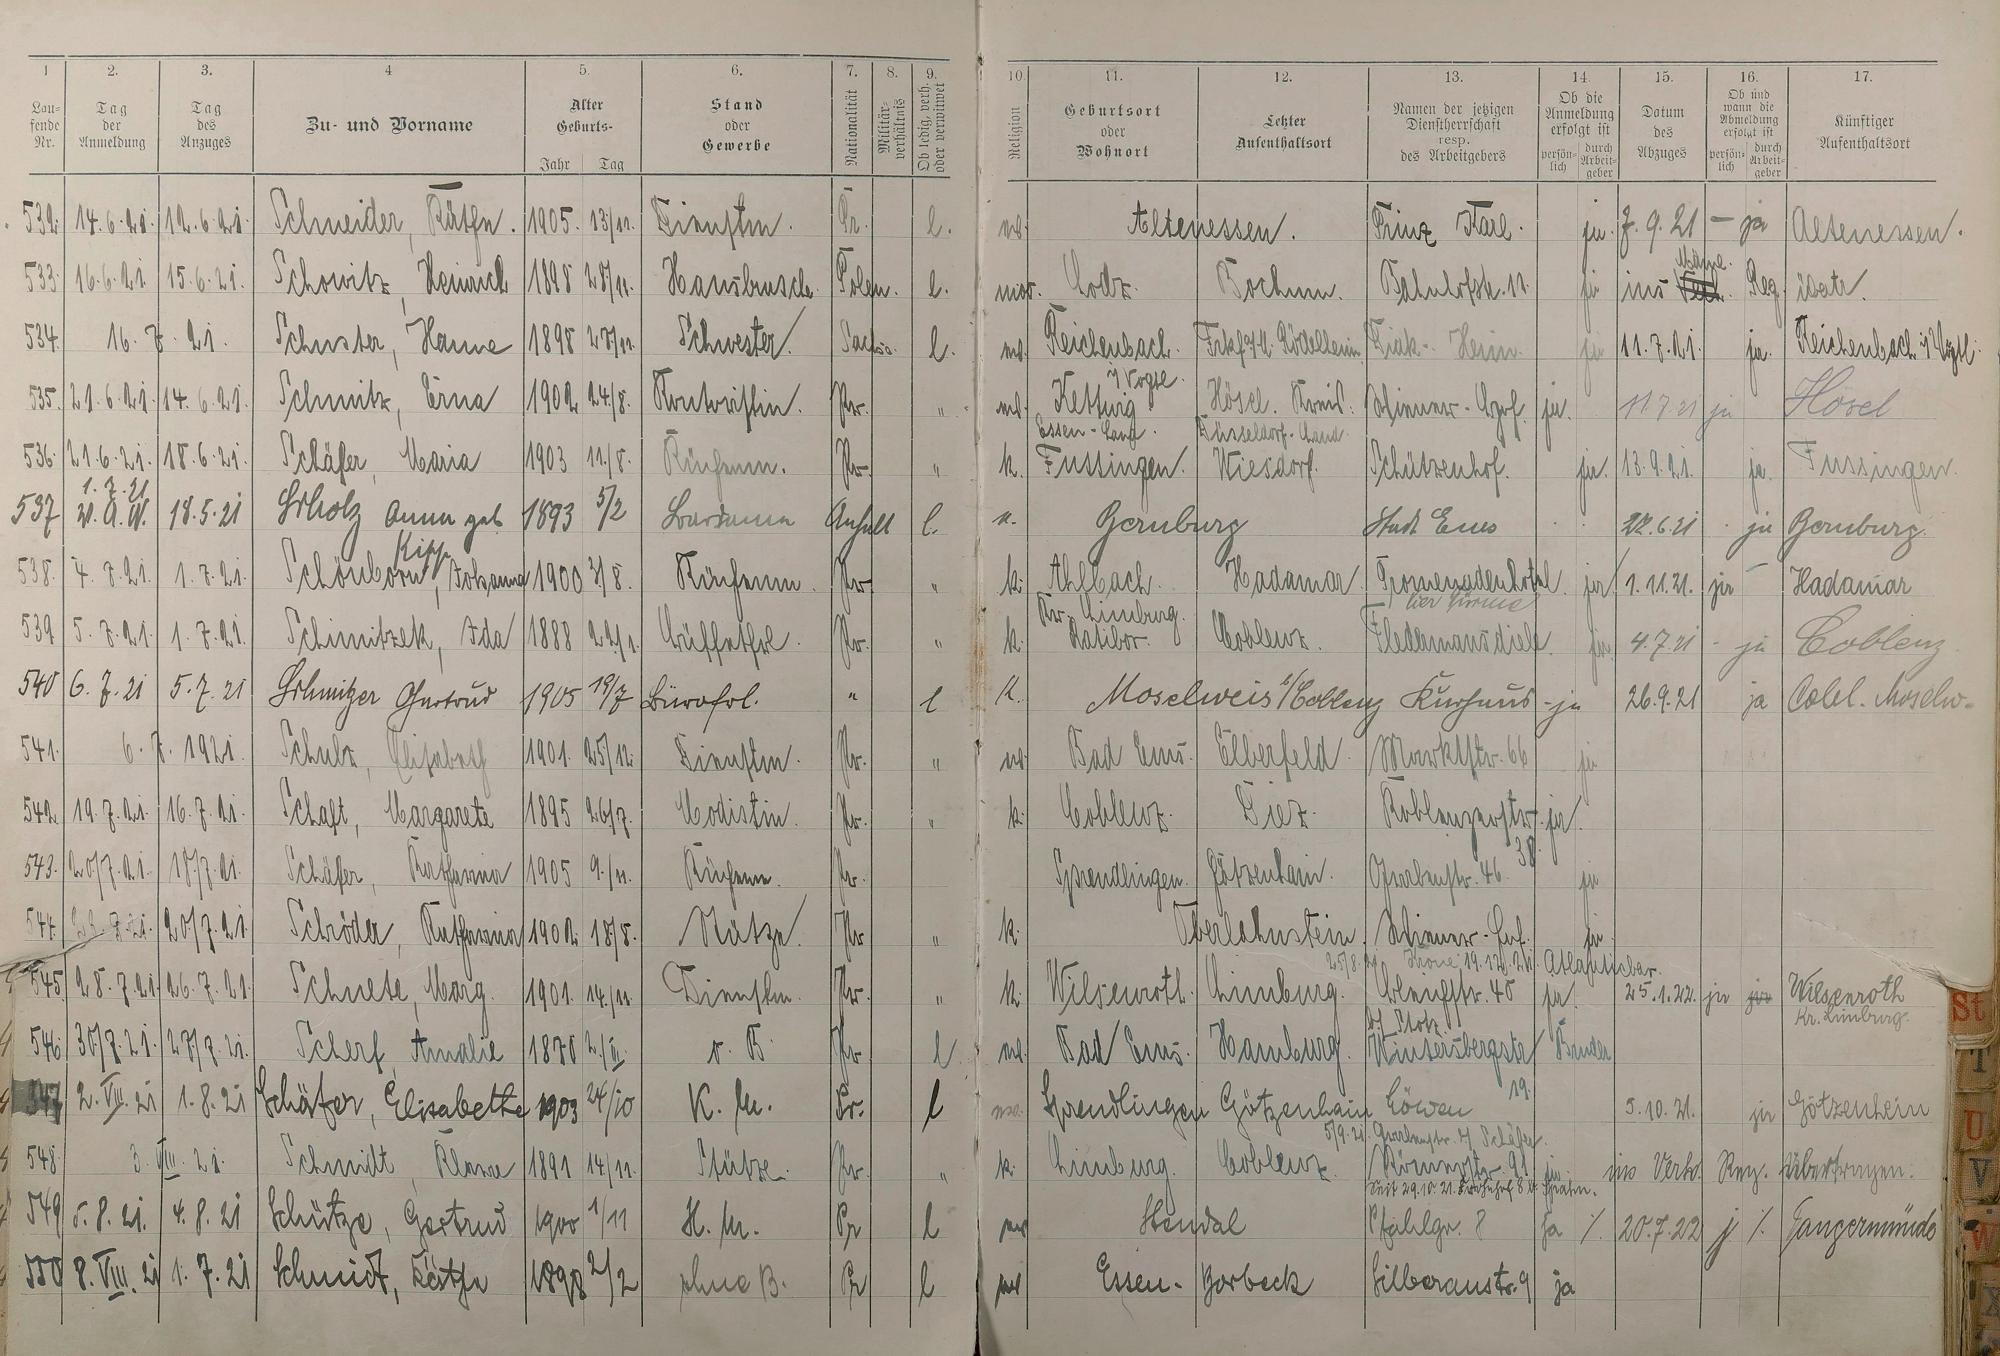 1 2. 3. 4 5. 6. 7. 8. 9. 10. 11. 12. 13. 14. 15. 16. 17.
Lau-
fende
Nr.
Tag
der
Anmeldung
Tag
des
Anzuges
Zu- und Vorname
Alter
Geburts-
Jahr Tag
Stand
oder
Gewerbe
Nationalität
Militär-
verhältnis
Ob ledig, verh.
oder verwitwet
Religion
Geburtsort
oder
Wohnort
Letzter
Aufenthaltsort
Namen der jetzigen
Dienstherrschaft
resp.
des Arbeitgebers
Ob die
Anmeldung
erfolgt ist
persön-
lich
durch
Arbeit-
geber
Datum
des
Abzuges
Ob und
wann die
Abmeldung
erfolgt ist
persön-
lich
durch
Arbeit-
geber
Künftiger
Aufenthaltsort
532. 14.6.21. 12.6.21 Schneider, Käthe. 1905. 13/11. Dienstm. Pr. l. ev. Altenessen. Prinz Karl. ja. 7.9.21 — ja Altenessen.
533 16.6.21 15.6.21. Schowitz, Heinrich 1898 28/11. Hausbursche. Polen. l. mos. Lodz. Bochum. Bahnhofstr. 11 ja ins Männe. Reg. übetr.
534. 16.7.21. Schuster, Hanne 1898 27/11. Schwester. Sachs. l. ev. Reichenbach. Frkf a/M. Rödelheim Heim. ja 11.7.21. ja. Reichenbach i/Vogtl.
i/Vogtl.
535. 21.6.21. 14.6.21. Schmitz, Erna 1902 24/8. Kontoristin. Pr. " ev. Kettwig Hösel. Kreis. Wiener-Hof. ja. 11.7.21 ja Hösel
Essen-Land. Düsseldorf-Land.
536. 21.6.21. 18.6.21. Schäfer, Maria 1903 11/8. Küchenm. Pr. " k. Fussingen. Wiesdorf. Schützenhof. ja. 13.9.21. ja. Fussingen.
1.7.21
537 v.A.W. 18.5.21 Scholz Anna geb 1893 5/2 Anhalt l. Bernburg Stadt Ems 27.6.21 ja Bernburg.
Kipp
538. 4.7.21. 1.7.21. Schönborn, Johanna 1900 3/8. Küchenm. Pr. " k. Ahlbach. Hadamar. Promenadenhotel. ja. 1.11.21. ja — Hadamar
Kr. Limburg.
539 5.7.21. 1.7.21. Schimitzek, Ida 1888 22/1. Büffetfrl. Pr. " k. Ratibor. Coblenz. Fledermausdiele. ja. 4.7.21 - ja Coblenz
540 6.7.21 5.7.21 Schmitzer Gertrud 1905 19/7 Bürofrl. " l K. Moselweis b/Coblenz Kurhaus - ja 26.9.21 ja Cobl. Moselw-
541. 6.7.1921. Schulz, Elisabeth 1901. 25/12. Dienstm. Pr. " ev. Bad Ems. Elberfeld. Marktstr. 66 ja
542 19.7.21. 16.7.21. Schaft, Margarete 1895 26/7. Modistin. Pr. " k. Coblenz. Diez. Koblenzerstr. ja.
38.
543. 20/7.21. 18/7.21. Schäfer, Katharina 1905 9./11. Küchenm. Pr. Sprendlingen. Götzenhain. Grabenstr. 46. ja
544. 20/7.21. Schröder, Katharina 1902. 18/8. Stütze. Pr " k. Oberlahnstein. Wiener-Hof. ja.
25/8.21. Krone 19.12.21. Atlanticbar.
545 28.7.21 26.7.21. Schnese, Marg. 1901. 14/11. Dienstm. Pr. " k. Wilsenroth. Limburg. 40 ja. 25.1.22. ja Wilsenroth
Kr. Limburg.
b/ Stotz.
546. 30/7.21. 27/7.21. Scherf, Amalie 1870 2./II. o. B. Pr l ev. Bad Ems. Hamburg. Wintersbergstr Bruder
19.
547 2.VIII.21 1.8.21 Schäfer, Elisabethe 1903 24/10 K. M. Pr. l ev. Sprendlingen Götzenhain Löwen 5.10.21. ja Götzenhein
5/9.21. Grabenstr. b/ Schäfer.
548. 3.VIII.21. Schmidt, Klara 1891 14/11. Stütze. Pr. " k. Limburg. Coblenz. Römerstr. 91 ja. ins Verh. Reg. Übertragen.
549 5.8.21. 4.8.21 Schütze, Gertrud 1900 1/11 H. M. Pr l ev Stendal Pfahlgr. 8 ja % 20.7.22 j % Tangermünde
550 8.VIII.21 1.7.21 Schmidt, Käthe 1898 2/2 ohne B. Pr l ev Essen-Borbeck Silberaustr. 9 ja
St
T
U
V
W
X